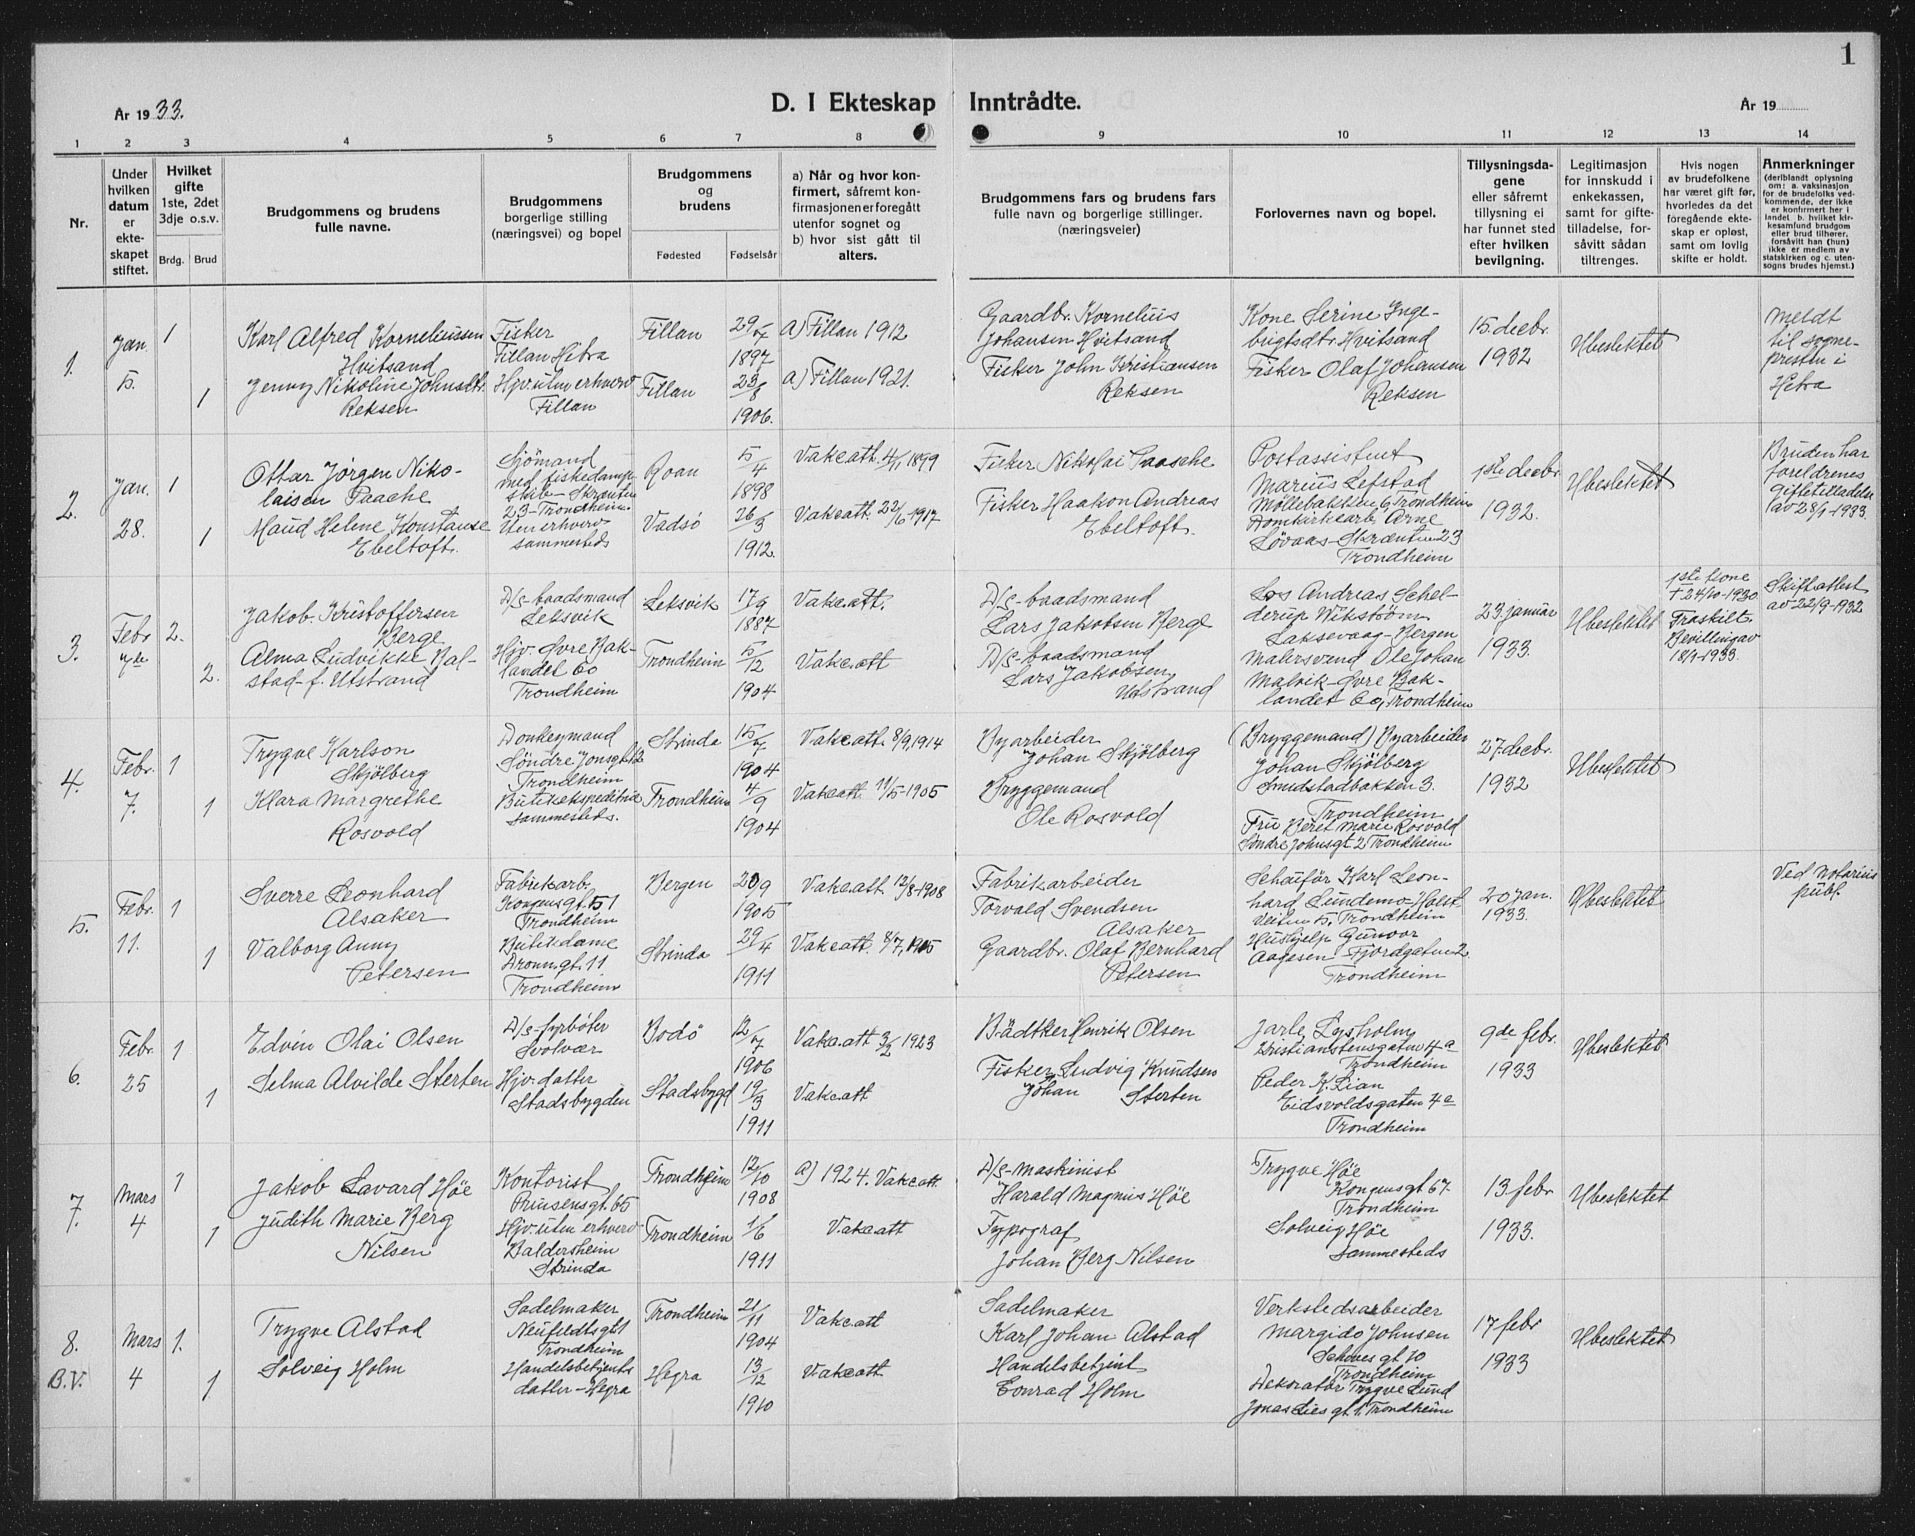 1
År 1933.
D. I Ekteskap Inntrådte.
År 19
1 2 3 4 5 6 7 8 9 10 11 12 13 14
Nr.
Under
hvilken
datum
er
ekte-
skapet
stiftet.
Hvilket
gifte
1ste, 2det
3dje o.s.v.
Brdg. Brud
Brudgommens og brudens
fulle navne.
Brudgommens
borgerlige stilling
(næringsvei) og bopel
Brudgommens
og
brudens
Fødested Fødselsår
a) Når og hvor kon-
firmert, såfremt kon-
firmasjonen er foregått
utenfor sognet og
b) hvor sist gått til
alters.
Brudgommens fars og brudens fars
fulle navn og borgerlige stillinger.
(næringsveier)
Forlovernes navn og bopel.
Tillysningsda-
gene
eller såfremt
tillysning ei
har funnet sted
efter hvilken
bevilgning.
Legitimasjon
for innskudd i
enkekassen,
samt for gifte-
tilladelse, for-
såvitt sådan
tiltrenges.
Hvis nogen
av brudefolkene
har været gift før,
hvorledes da det
foregående ekte-
skap er opløst,
samt om lovlig
skifte er holdt.
Anmerkninger
(deriblandt oplysning
om: a. vaksinasjon
for de brudefolks ved-
kommende, der ikke
er konfirmert her i
landet b. hvilket kir-
kesamfund brudgom
eller brud tilhører,
forsåvitt han (hun)
ikke er medlem av
statskirken og c. uten-
sogns brudes hjemst.)
1.
Jan.
5.
1
1
Karl Alfred Korneliussen
Hvitsand
Jenny Nikoline Johnsdtr.
Reksen
Fisker
Fillan Hitra
Hjv. uten erhverv
Fillan
Fillan
Fillan
1897
23/8
1906.
a) Fillan 1912
a) Fillan 1921.
Gaardbr. Kornelius
Johansen Hvitsand
Fisker John Kristiansen
Reksen
Kone Serine Inge-
brigtsdtr. Hvitsand
Fisker Olaf Johansen
Reksen
15. decbr.
1932
Ubeslektet
Meldt
til sogne-
presten i
Hitra
2.
Jan.
28.
1
1
Ottar Jørgen Niko-
laisen Paasche
Maud Helene Konstanse
Ebeltoft.
Sjömand
med fiskedamp-
skib - Skrænten
23 - Trondheim
Uten erhverv
sammesteds
Roan
Vadsö
5/4
1898
26/3
1912.
Vakc.att. 4/1 1899
Vakc.att. 22/6 1917
Fisker Nikolai Paasche
Fisker Haakon Andreas
Ebeltoft.
Postassistent
Marius Lefstad
Møllebakken 6 Trondheim
Domkirkearb. Arne
Løvaas - Skrænten 23
Trondheim
1ste decbr.
1932.
Ubeslektet
Bruden har
foreldrenes
giftetilladelse
av 28/1-1933
3.
Febr.
7de
2.
2.
Jakob Kristoffersen
Berge
Alma Ludvikke Bal-
stad - f. Utstrand
D/s - baadsmand
Leksvik
Hjv. Øvre Bak-
landet 60
Trondheim
Leksvik
Trondheim
17/9
1887
5/12
1904
Vakc.att.
Vakc.att
D/s - baadsmand
Lars Jakobsen Berge
D/s - baadsmand
Lars Jakobsen
Udstrand
Los Andreas Schel-
derup Wikstrøm
Laksevaag - Bergen
Malersvend Ole Johan
Malvik - Øvre Bak-
landet 60, Trondheim
23. januar
1933.
Ubeslektet
1ste kone
† 24/10-1930
Fraskilt.
Bevilling av
18/1-1933.
Skifteattest
av 22/9-1932
4.
Febr.
7.
1
1
Trygve Karlson
Skjölberg
Klara Margrethe
Rosvold
Donkeymand
Söndre Jonsgt. 2
Trondheim
Butikekspeditrice
sammesteds.
Strinda
Trondheim
15/7
1904
4/9
1904
Vakc.att. 8/9, 1914
Vakc.att. 11/5-1905
Byarbeider
Johan Skjölberg
Bryggemand
Ole Rosvold
(Bryggemand) Byarbeider
Johan Skjölberg
Smedstadbakken 3.
Trondheim
Fru Beret Marie Rosvold
Søndre Johnsgt 2 Trondheim
27. decbr.
1932
Ubeslektet
5.
Febr.
11.
1
1
Sverre Leonhard
Alsaker
Valborg Anny
Petersen
Fabrikarb.
Kongensgt. 51
Trondheim
Butikdame
Dronn.gt. 11
Trondheim
Bergen
Strinda
20/9
1905
29/4
1911
Vakc.att. 12/8-1908
Vakc.att. 8/7, 1915
Fabrikarbeider
Torvald Svendsen
Alsaker
Gaardbr. Olaf Bernhard
Petersen
Schaufør Karl Leon-
hard Lundemo - Holst
Veiten 5, Trondheim
Hushjelp Gunvor
Aagesen - Fjordgaten 2.
Trondheim
20 jan.
1933.
Ubeslektet
Ved Notarius
publ.
6.
Febr.
25
1
1
Edvin Olai Olsen
Selma Alvilde Sterten
D/s - fyrböter
Svolvær
Hjv. datter
Stadsbygden
Bodö
Stadsbygd
12/7
1906
19/3
1911
Vakc.att 3/2 1923
Vakc.att
Bådtker Henrik Olsen
Fisker Ludvig Knudsen
Johan Sterten
Jarle Lysholm
Kristianstensgaten 4a
Trondheim
Peder K. Lian
Eidsvoldsgaten 4a
Trondheim
9de febr.
1933
Ubeslektet
7.
Mars
4
1
1
Jakob Lavard Höe
Judith Marie Berg
Nilsen
Kontorist
Prinsensgt. 65
Hjv. uten erhverv
Baldersheim
Strinda
Trondheim
Trondheim
12/10
1908
1/6
1911
a) 1924. Vakc.att
Vakc.att
D/s - maskinist
Harald Magnus Höe
Typograf
Johan Berg Nilsen
Trygve Höe
Kongensgt 67.
Trondheim
Solveig Höe
sammesteds
13 febr
1933.
Ubeslektet
8.
B.V.
Mars
4
1.
1
Trygve Alstad
Solveig Holm
Sadelmaker
Neufeldtsgt 1
Trondheim
Handelsbetjents
datter - Hegra
Trondheim
Hegra
21/11
1904
13/12
1910
Vakc.att
Vakc.att
Sadelmaker
Karl Johan Alstad
Handelsbetjent
Conrad Holm
Verkstedsarbeider
Margido Johnsen
Schives gt 10
Trondheim
Dekoratør Trygve Lund
Jonas Lies gt. 1, Trondheim
17 febr
1933
Ubeslektet